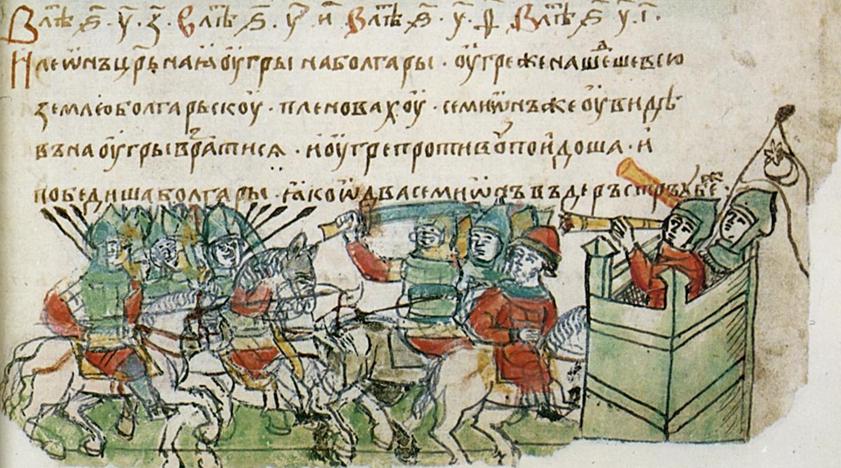 В лѣт҃ ѕ҃ · у҃ · з҃ · В лѣт҃ ѕ҃ · у҃ · и҃ В лѣт҃ ѕ҃ · у҃ · ѳ҃ В лѣт҃ ѕ҃ у҃ · і҃ ·
И леѡнъ цр҃ь наꙗ оугры на болгары · оугре же нашедше всю
землю болгарьскоу · пленовахоу · семиѡнъ же оувидѣ
въ на оугры вратися · и оугре противоу поидоша · и
победиша болгары · ꙗко ѡдва семиѡнъ въ деръстръ убѣ